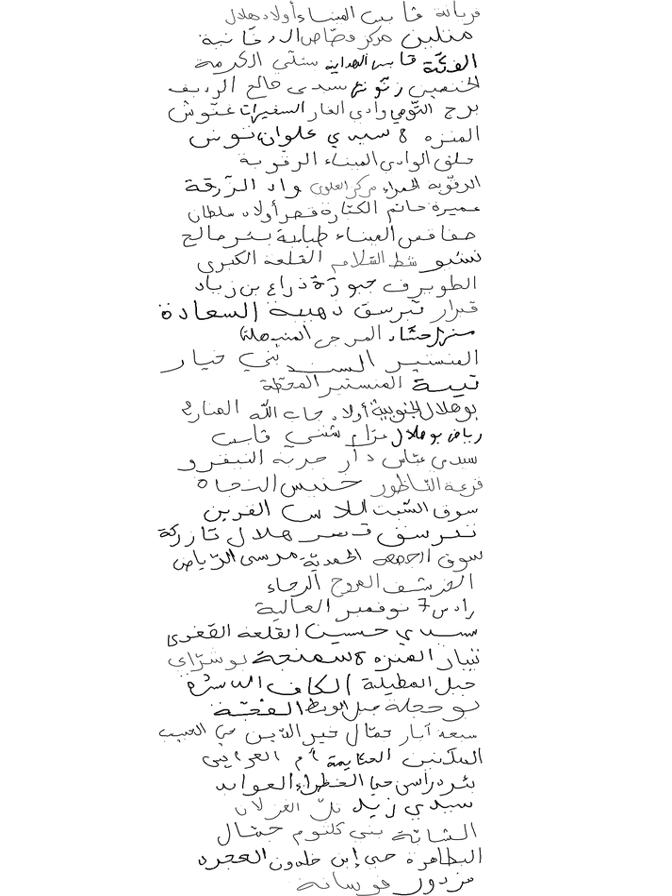 فريانة قابس الميناء أولاد هلال
منلين مركز قصّاص الدخانية
الفكّة قابس الهداية سنتي الكرمة
الخنقي زنّوش سيدي صالح الرديف
برج التّومي وادي الغار السفيرات غنّوش
المنزه 8 سيدي علوان تونس
حلق الوادي الميناء الرقوبة
الرقّوبة الحمراء مركز العلوي واد الزّرقة
عميرة حاتم الكتّارة قصر أولاد سلطان
صفاقس الميناء طبلبة بئر صالح
نشيو شط السّلام القلعة الكبرى
الطويرف جبوزة ذراع بن زياد
قبرار تبرسق ذهيبة السعادة
منزل حشاد المرجى
المنستير السند بني خيار
تيبة المنستير المحطّة
بوهلال الجنوبية أولاد جاب الله المنارة
رياض بوهلال عزّام شنني قابس
سيدي عبّاس دار جربة النيفرو
قرعة النّاظور خنيس النجاة
سوق السّبت للا القرين
تبرسق قصر هلال تازركة
سوق الجمعة الحمديّة مرسى الرّياض
الخرشف المروج الرجاء
رادس 7 نوفمبر العالية
سيدي حسين القلعة القصوى
نيبار المنزه 8 سمنجة بوشرّاي
جبل المطيلة الكاف الناشرة
بوحجلة جبل الوسط القحبّة
سبعة آبار جمّال خير الدّين حي الحبيب
المكنين الحكايمة أم العرايس
بئر دراسن حي الخضراء العوابد
سيدي زيد تلّ الغزلان
الشابّة بني كلثوم جمّال
البطاهرة حي إبن خلدون الحجرة
مزدور فوسانة